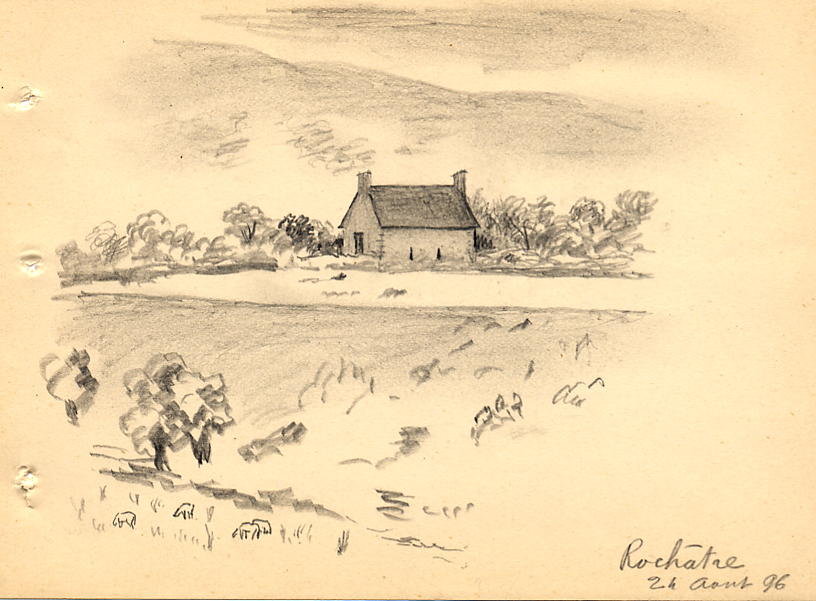 Rochâtre
24 Aout 96